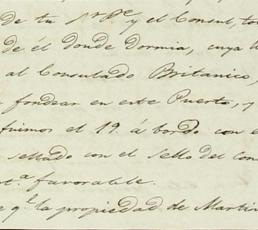 De tu pr.pe y el Consul, to
de él donde Dormia, cuya l
al Consulado Britanico,
fondear en este Puerto, y
fuimos el 19. á bordo con e
sellado con el Sello del Con
t.a favorable.
e q.e la propiedad de Martin